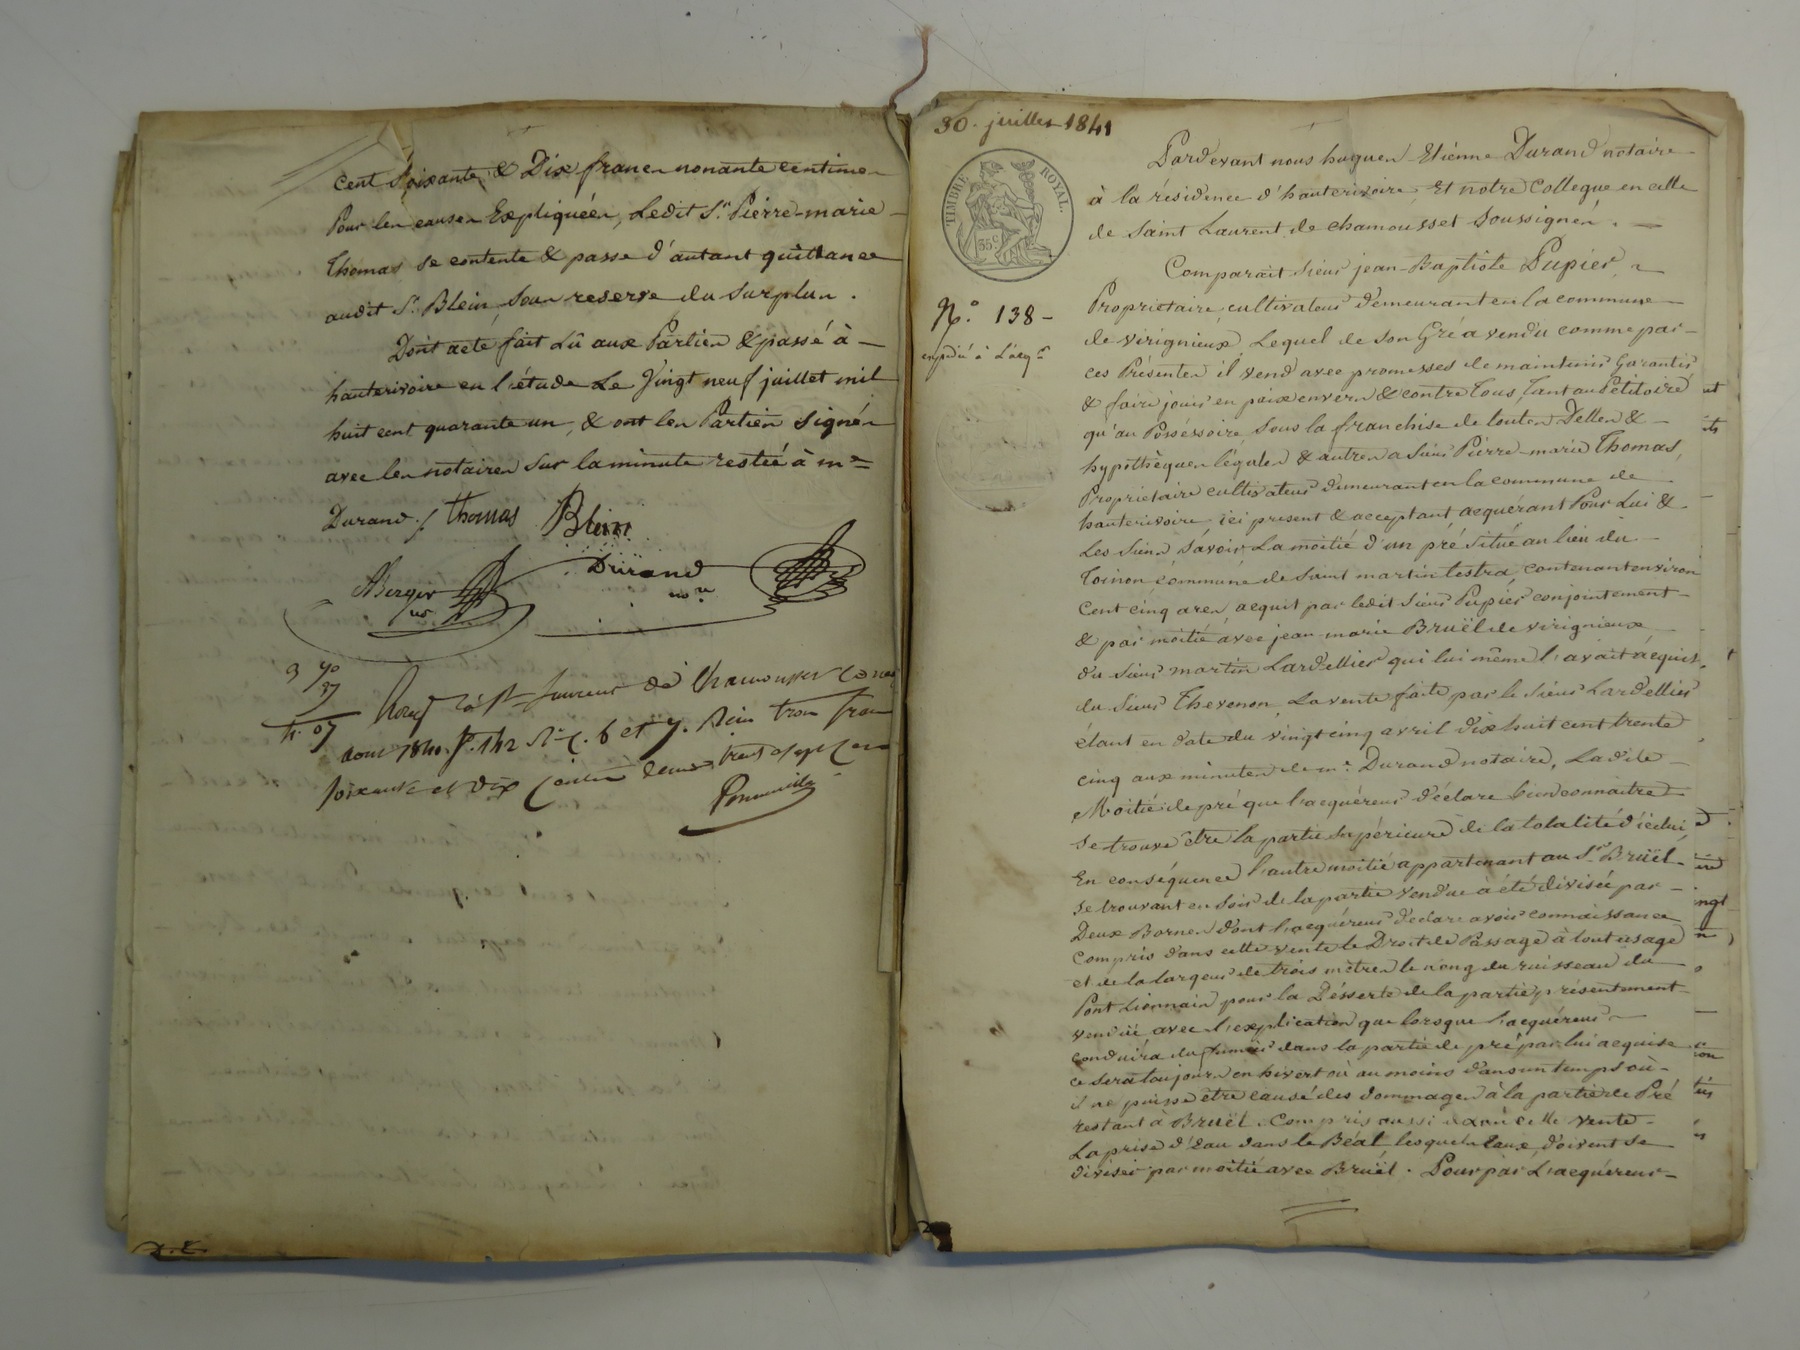 cent soixante & Dix francs nonante centimes
Pour les causes Expliquées, Ledit Sr Pierre-marie
Thomas se contente & passe d'autant quittance
audit Sr Blein, sous reserve du surplus.
Dont acte fait Lû aux Parties & passé à
hauterivoire en l'étude Le Vingt neuf juillet mil
huit cent quarante un, & ont les Parties Signés
avec les notaires sur la minute restée à me
Durand. / Thomas Blein
Berger Durand
nre nre
3 70
37
4. 07
à St Laurent de Chamousset Le
aout 1841. fo. 142 Ro C. 6 et 7. Reçu trois francs
soixante et dix centimes trente sept
D. E.
30. juillet 1841
TIMBRE ROYAL.
35 c
No. 138 -
expédié à L'acqr
Pardevant nous hugues Etiénne Durand notaire
à la résidence d'hauterivoire, Et notre Collegue en celle
de Saint Laurent de Chamousset Soussignés.
Comparait Sieur jean-Baptiste Pupier
Proprietaire cultivateur demeurant en la commune
de virignieux Lequel de son Gré a vendu comme par
ces Présentes il vend avec promesses de maintenir Garantir
& faire jouir en paix envers & contre Tous, Tant au Petitoire
qu'au Posséssoire Sous la franchise de toutes Dettes &
hypothèques légales & autres a Sieur Pierre-marie Thomas,
Proprietaire cultivateur demeurant en la commune de
hauterivoire, ici present & acceptant acquérant Pour Lui &
Les Siens Savoir La moitié d'un pré Situé au lieu du
Toinon commune de Saint martin Lestra, contenant environ
Cent cinq ares, acquit par ledit Sieur Pupier conjointement
& par moitié avec jean-marie Bruël de virignieux
du Sieur martin Lardellier qui lui même l'avait acquis
du Sieur Thevenon, La vente faite par le Sieur Lardellier
étant en date du vingt cinq avril dix huit cent trente
cinq aux minutes de me. Durand notaire, Ladite
Moitié de pré que l'acquéreur déclare bien connaitre
se trouve être la partie Supérieure de la totalité d'icelui,
En conséquence l'autre moitié appartenant au Sr Bruël
se trouvant en Soir de la partie vendue à été divisée par
Deux Bornes dont l'acquéreur déclare avoir connaissance
Compris dans cette vente le Droit de Passage à tout usage
et de la largeur de trois mètres le long du ruisseau du
Pont Lionnain pour la Désserte de la partie présentement
venduë, avec l'explication que lorsque l'acquéreur
conduira du fumier dans la partie de pré par lui acquise
ce sera toujours en hivert où au moins dans un temps où
il ne puisse être causé des dommages à la partie de Pré
restant à Bruël. Compris aussi dans cette vente
La prise d'eau dans le Béal lesquelles Eaux doivent se
diviser par moitié avec Bruël. Pour par L'acquéreur